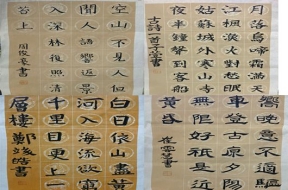 空山不見人但
聞人語響返景
入深林復照青
苔上
周俊豪書
月落烏啼霜滿天
江楓漁火對愁眠
姑蘇城外寒山寺
夜半鐘聲到客船
白日依山盡黃
河入海流欲窮
千里目更上一
層樓
鄭竣皓書
嚮晚意不適驅
車登古原夕陽
無限好祇是近
黃昏